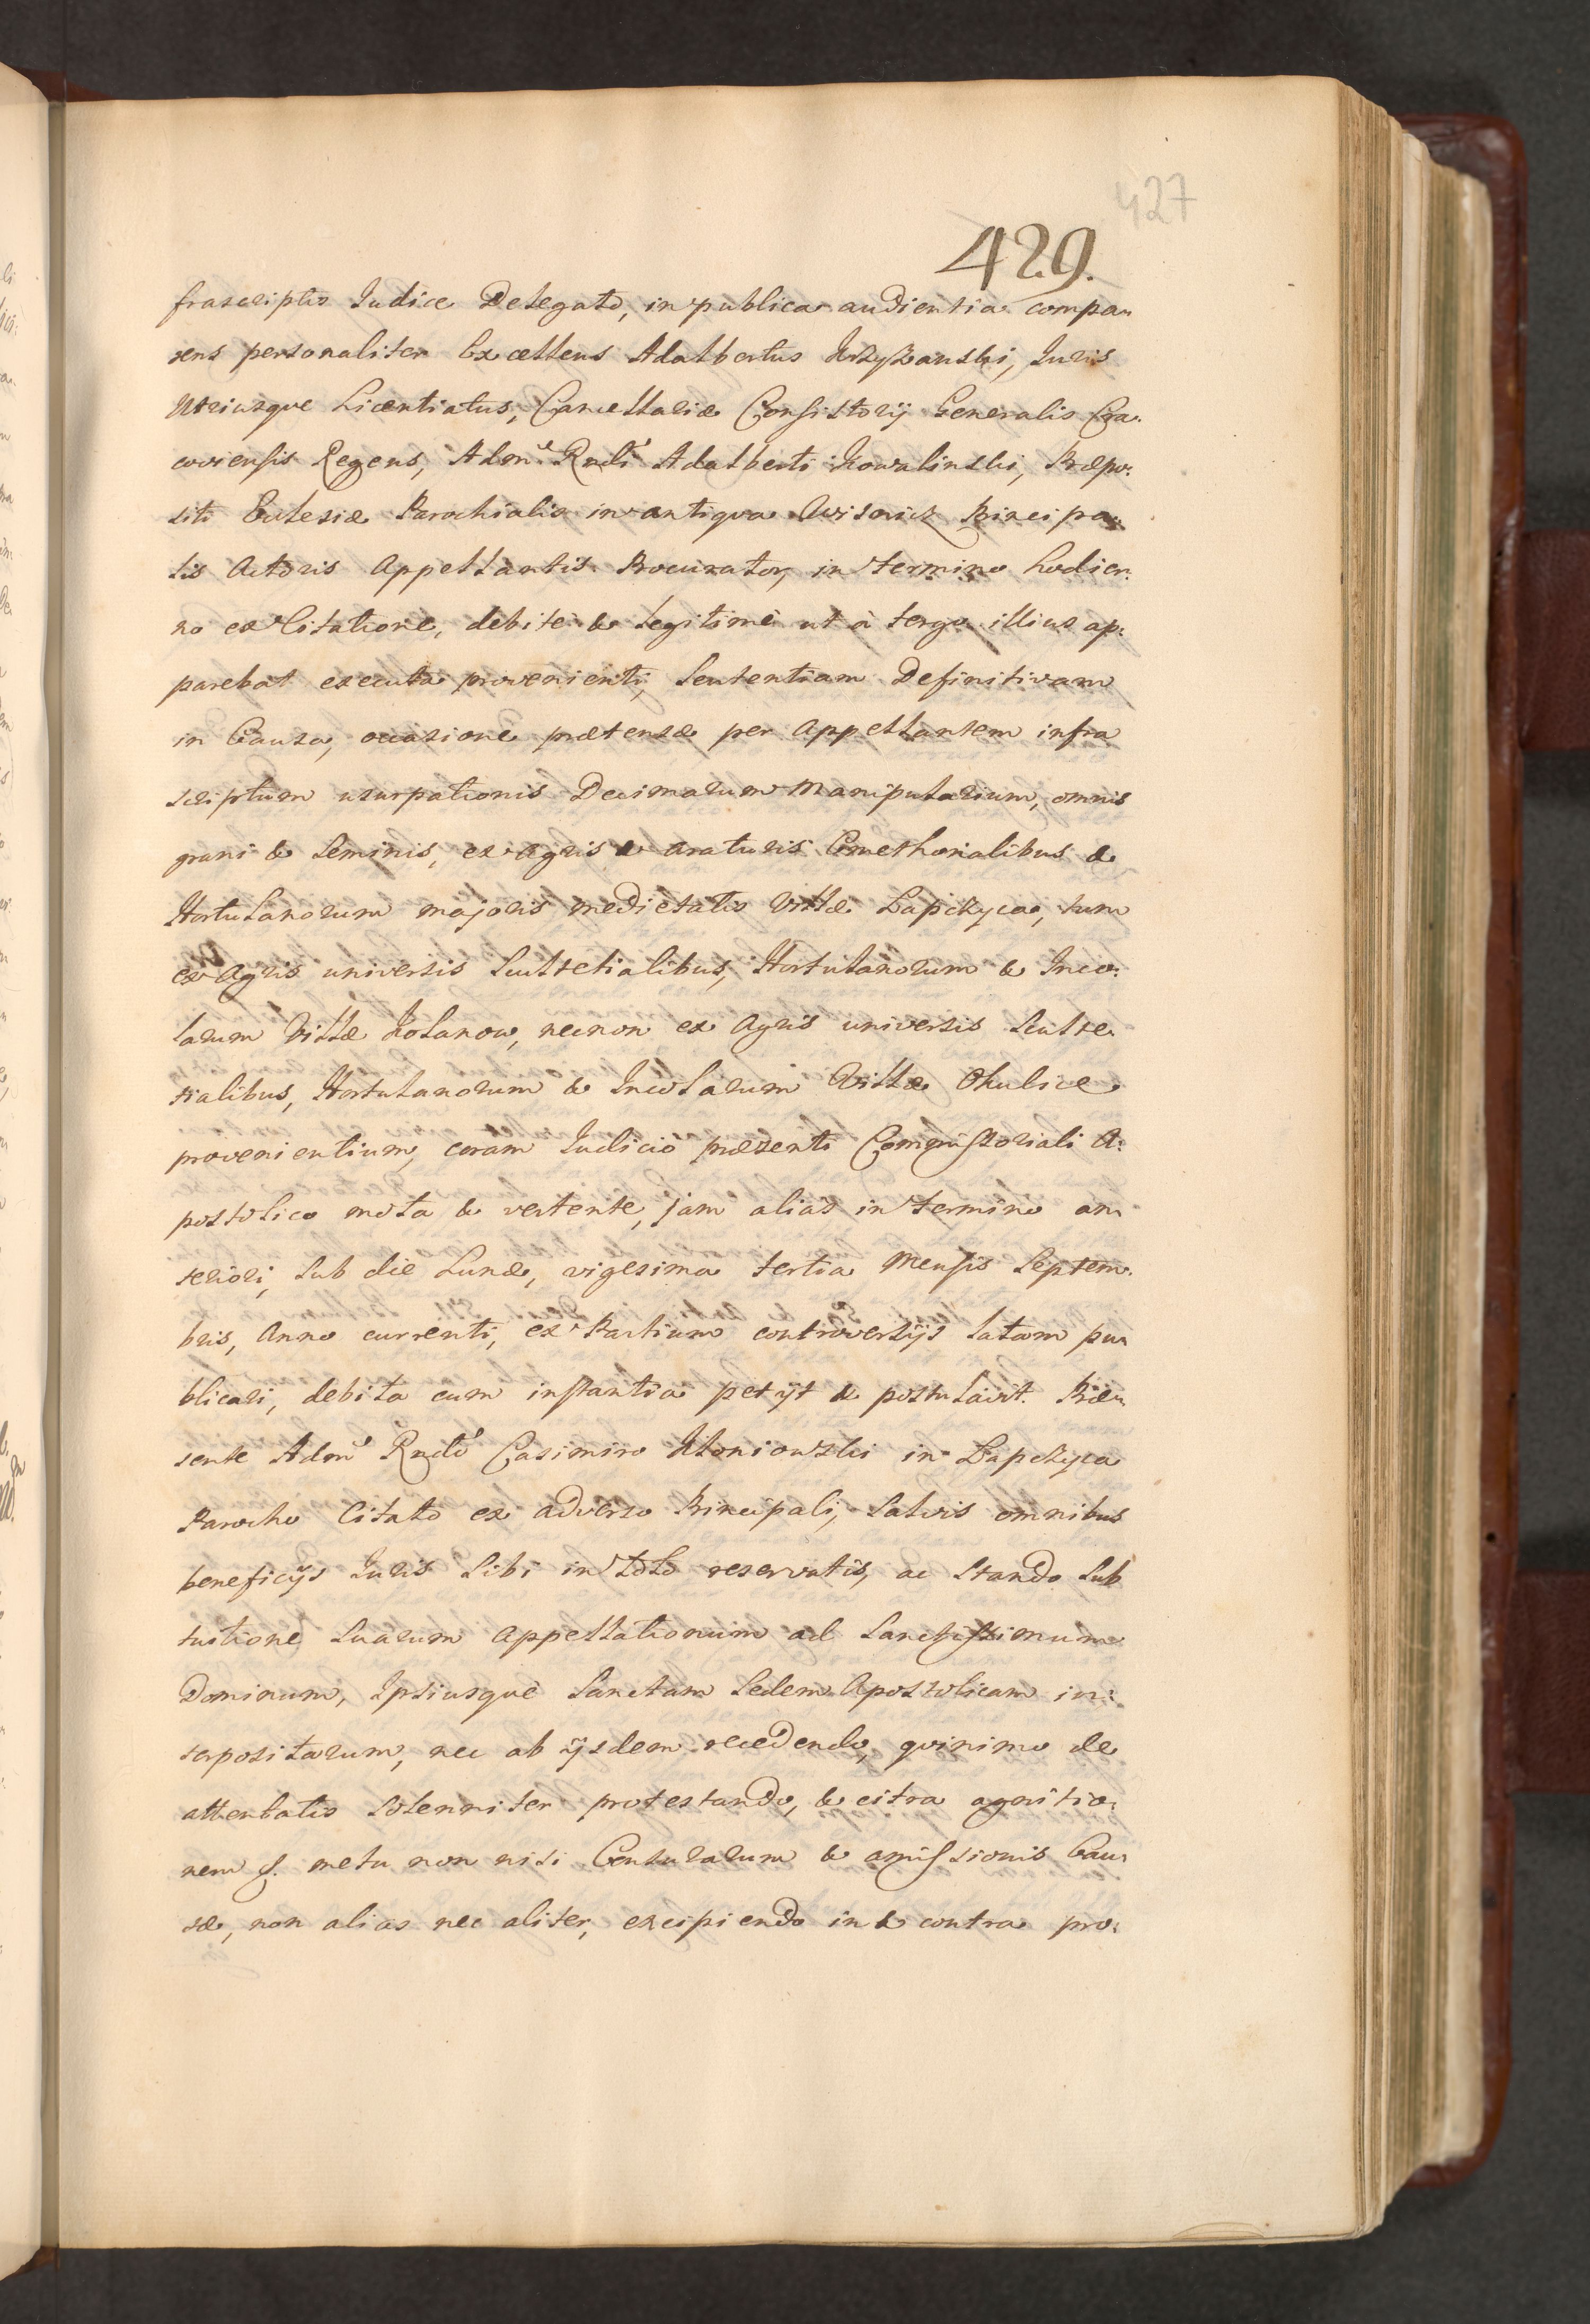 427
429.
frascripto Iudice Delegato, in publica audientia compa„
rens personaliter Excellens Adalbertus Krzyżanski, Iuris
Utriusque Licentiatus, Cancellariæ Consistorij Generalis Cra.
coviensis Regens, Admᵈⁱ Rndiˢ Adalberti Kowalinski, Præpo:
siti Eclesiæ Parochialis in antiqua Wisnicz Principa„
lis Actoris Appellantis Procurator, in termino hodier:
no ex Citatione, debitè & legitimè ut à tergo illius ap:
parebat executa provenienti, Sententiam Definitivam
in Causa, occasione prætensæ per Appellantem infra
scriptum usurpationis Decimarum Manipularium, omnis
grani & Seminis, ex Agris & araturis Cmethonalibus &
Hortulanorum majoris medietatis Villæ Łapczyca, tum
ex Agris universis Scultetialibus, Hortulanorum & Inco:
larum Villæ Kolanow, necnon ex Agris universis Sculte.
tialibus, Hortulanorum & Incolarum Villæ Okulice
provenientium, coram Iudicio præsenti Commissoriali A:
postolico mota & vertente, jam alias in termino an„
teriori, Sub die Lunæ, vigesima tertia Mensis Septem.
bris, Anno currenti, ex Partium controversijs latam pu„
blicari, debita cum instantia petijt & postulavit. Præ„
sente Admᵈ Rndo Casimiro Kłoniowski in Łapczyca
Parocho Citato ex adverso Principali, Salvis omnibus
beneficijs Iuris Sibi in toto reservatis, ac Stando Sub
tuitione Suarum Appellationum ad Sanctissimum
Dominum, Ipsiusquè Sanctam Sedem Apostolicam in:
terpositarum, nec ab ijsdem recedendo, quinimo de
attentatis Solenniter protestando, & citra agnitio:
nem S. metu non nisi Censurarum & amissionis Cau„
sæ, non alias nec aliter, excipiendo in & contra pro: